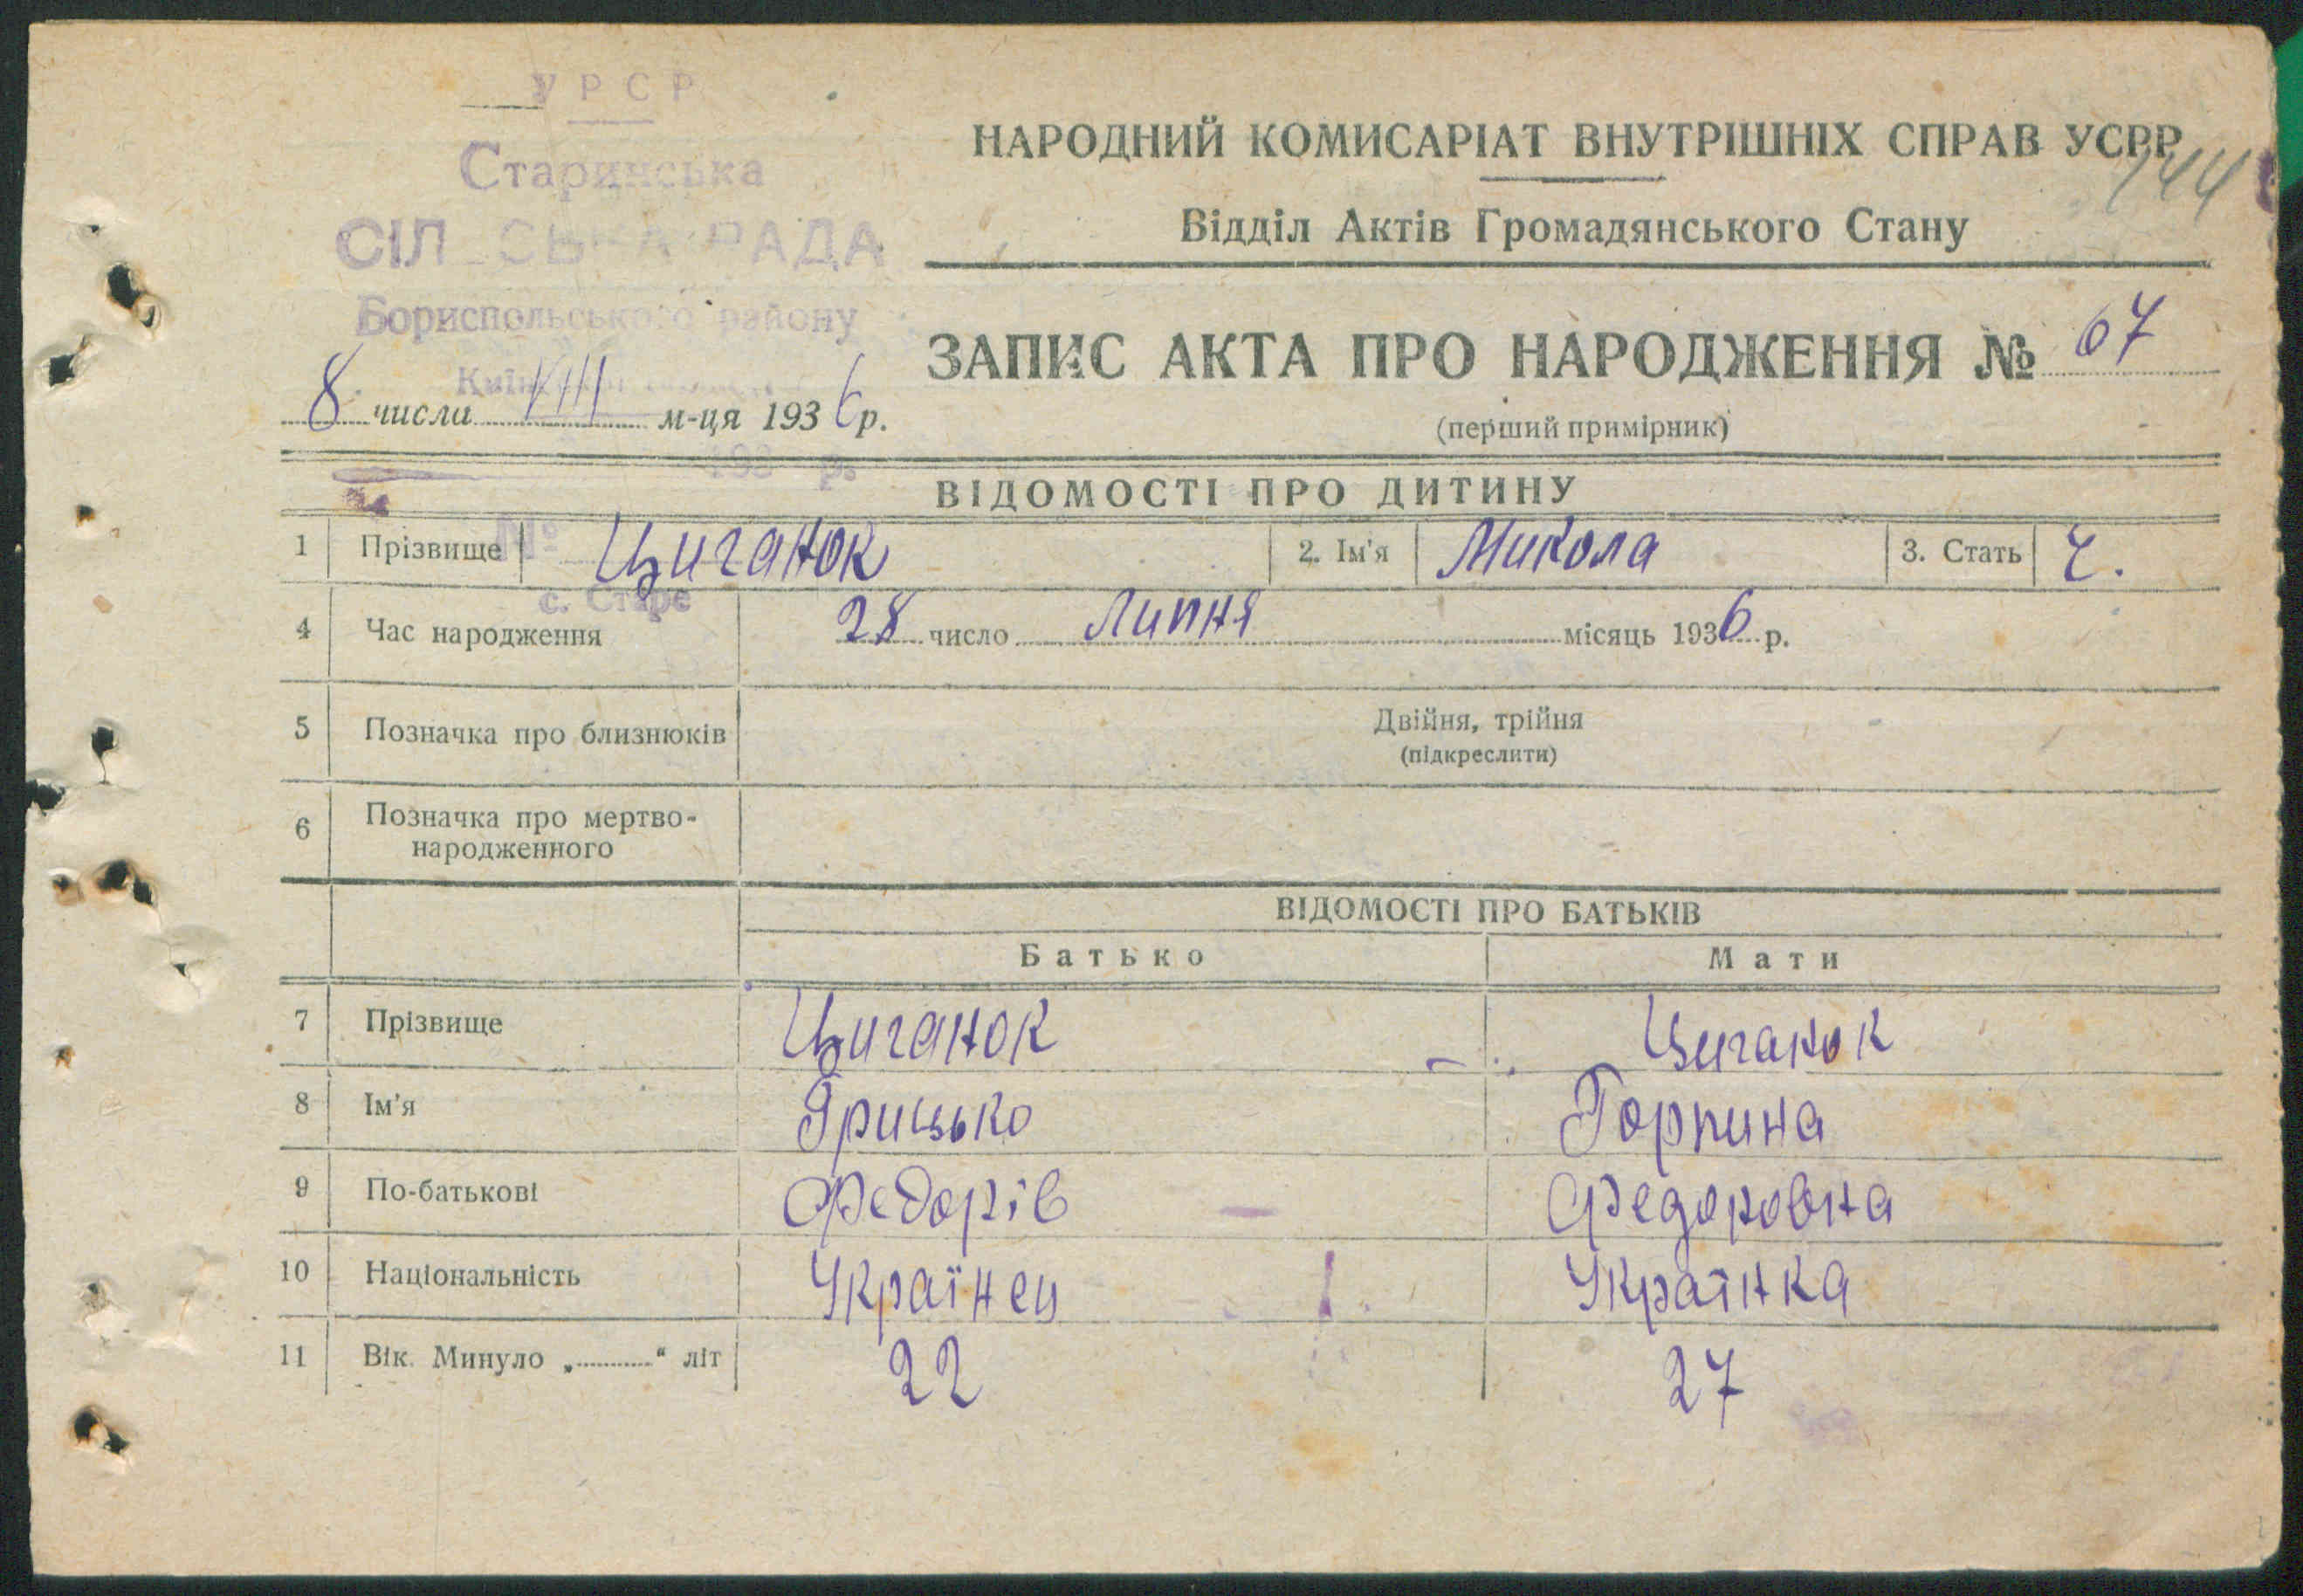 УРСР
Старинська
СІЛЬСЬКА РАДА
Бориспольського району
НАРОДНИЙ КОМИСАРІАТ ВНУТРІШНІХ СПРАВ УСРР
144
Відділ Актів Громадянського Стану
ЗАПИС АКТА ПРО НАРОДЖЕННЯ № 67
(перший примірник)
8 числа VIII м-ця 1936 р.
193 р.
ВІДОМОСТІ ПРО ДИТИНУ
№
1 Прізвище Циганок 2. Ім'я Микола 3. Стать Ч.
с. Старе
4 Час народження 28 число Липня місяць 1936 р.
5 Позначка про близнюків Двійня, трійня
(підкреслити)
6 Позначка про мертво-
народженного
ВІДОМОСТІ ПРО БАТЬКІВ
Батько Мати
7 Прізвище Циганок Циганок
8 Ім'я Грицько Горпина
9 По-батькові Федорів Федоровна
10 Національність Українец Українка
11 Вік. Минуло „ “ літ 22 27